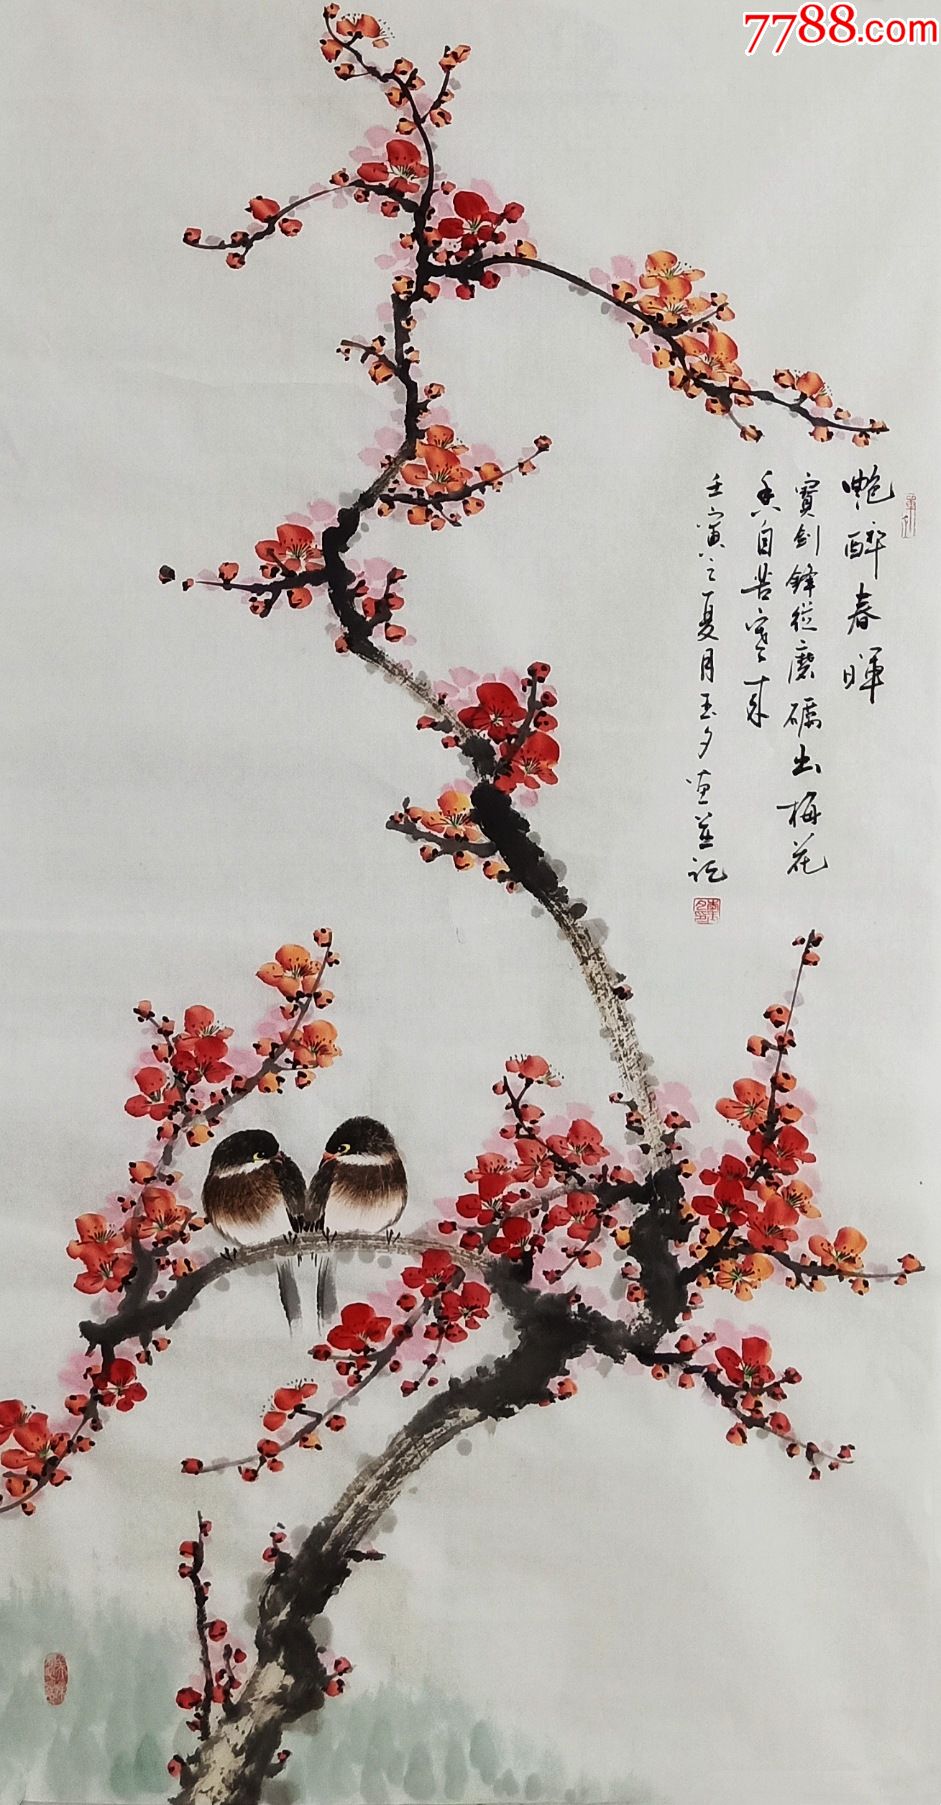 7788.com
艷醉春暉
寳剑鋒從磨礪出梅花
香自苦寒来
壬寅之夏月玉夕画并记